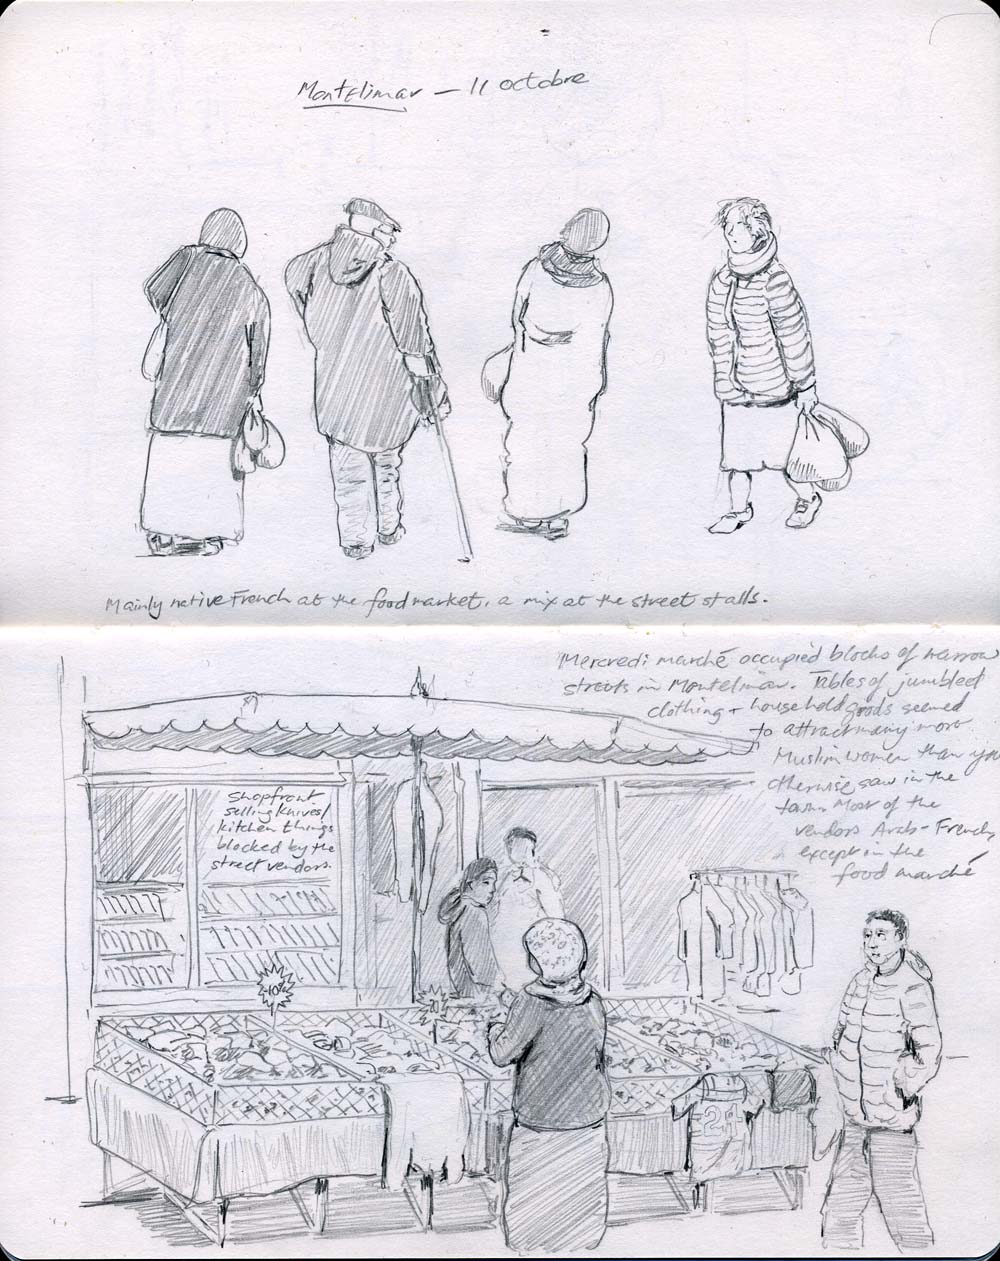 Montelimar – 11 octobre
Mainly native French at the food market, a mix at the street stalls.
Mercredi marché occupied blocks of narrow
streets in Montelimar. Tables of jumbled
clothing + household goods seemed
to attract many more
Muslim women than you
otherwise saw in the
town. Most of the
vendors Arab-French,
except in the
food marché
Shopfront
selling knives/
kitchen things
blocked by the
street vendors.
-10%
24